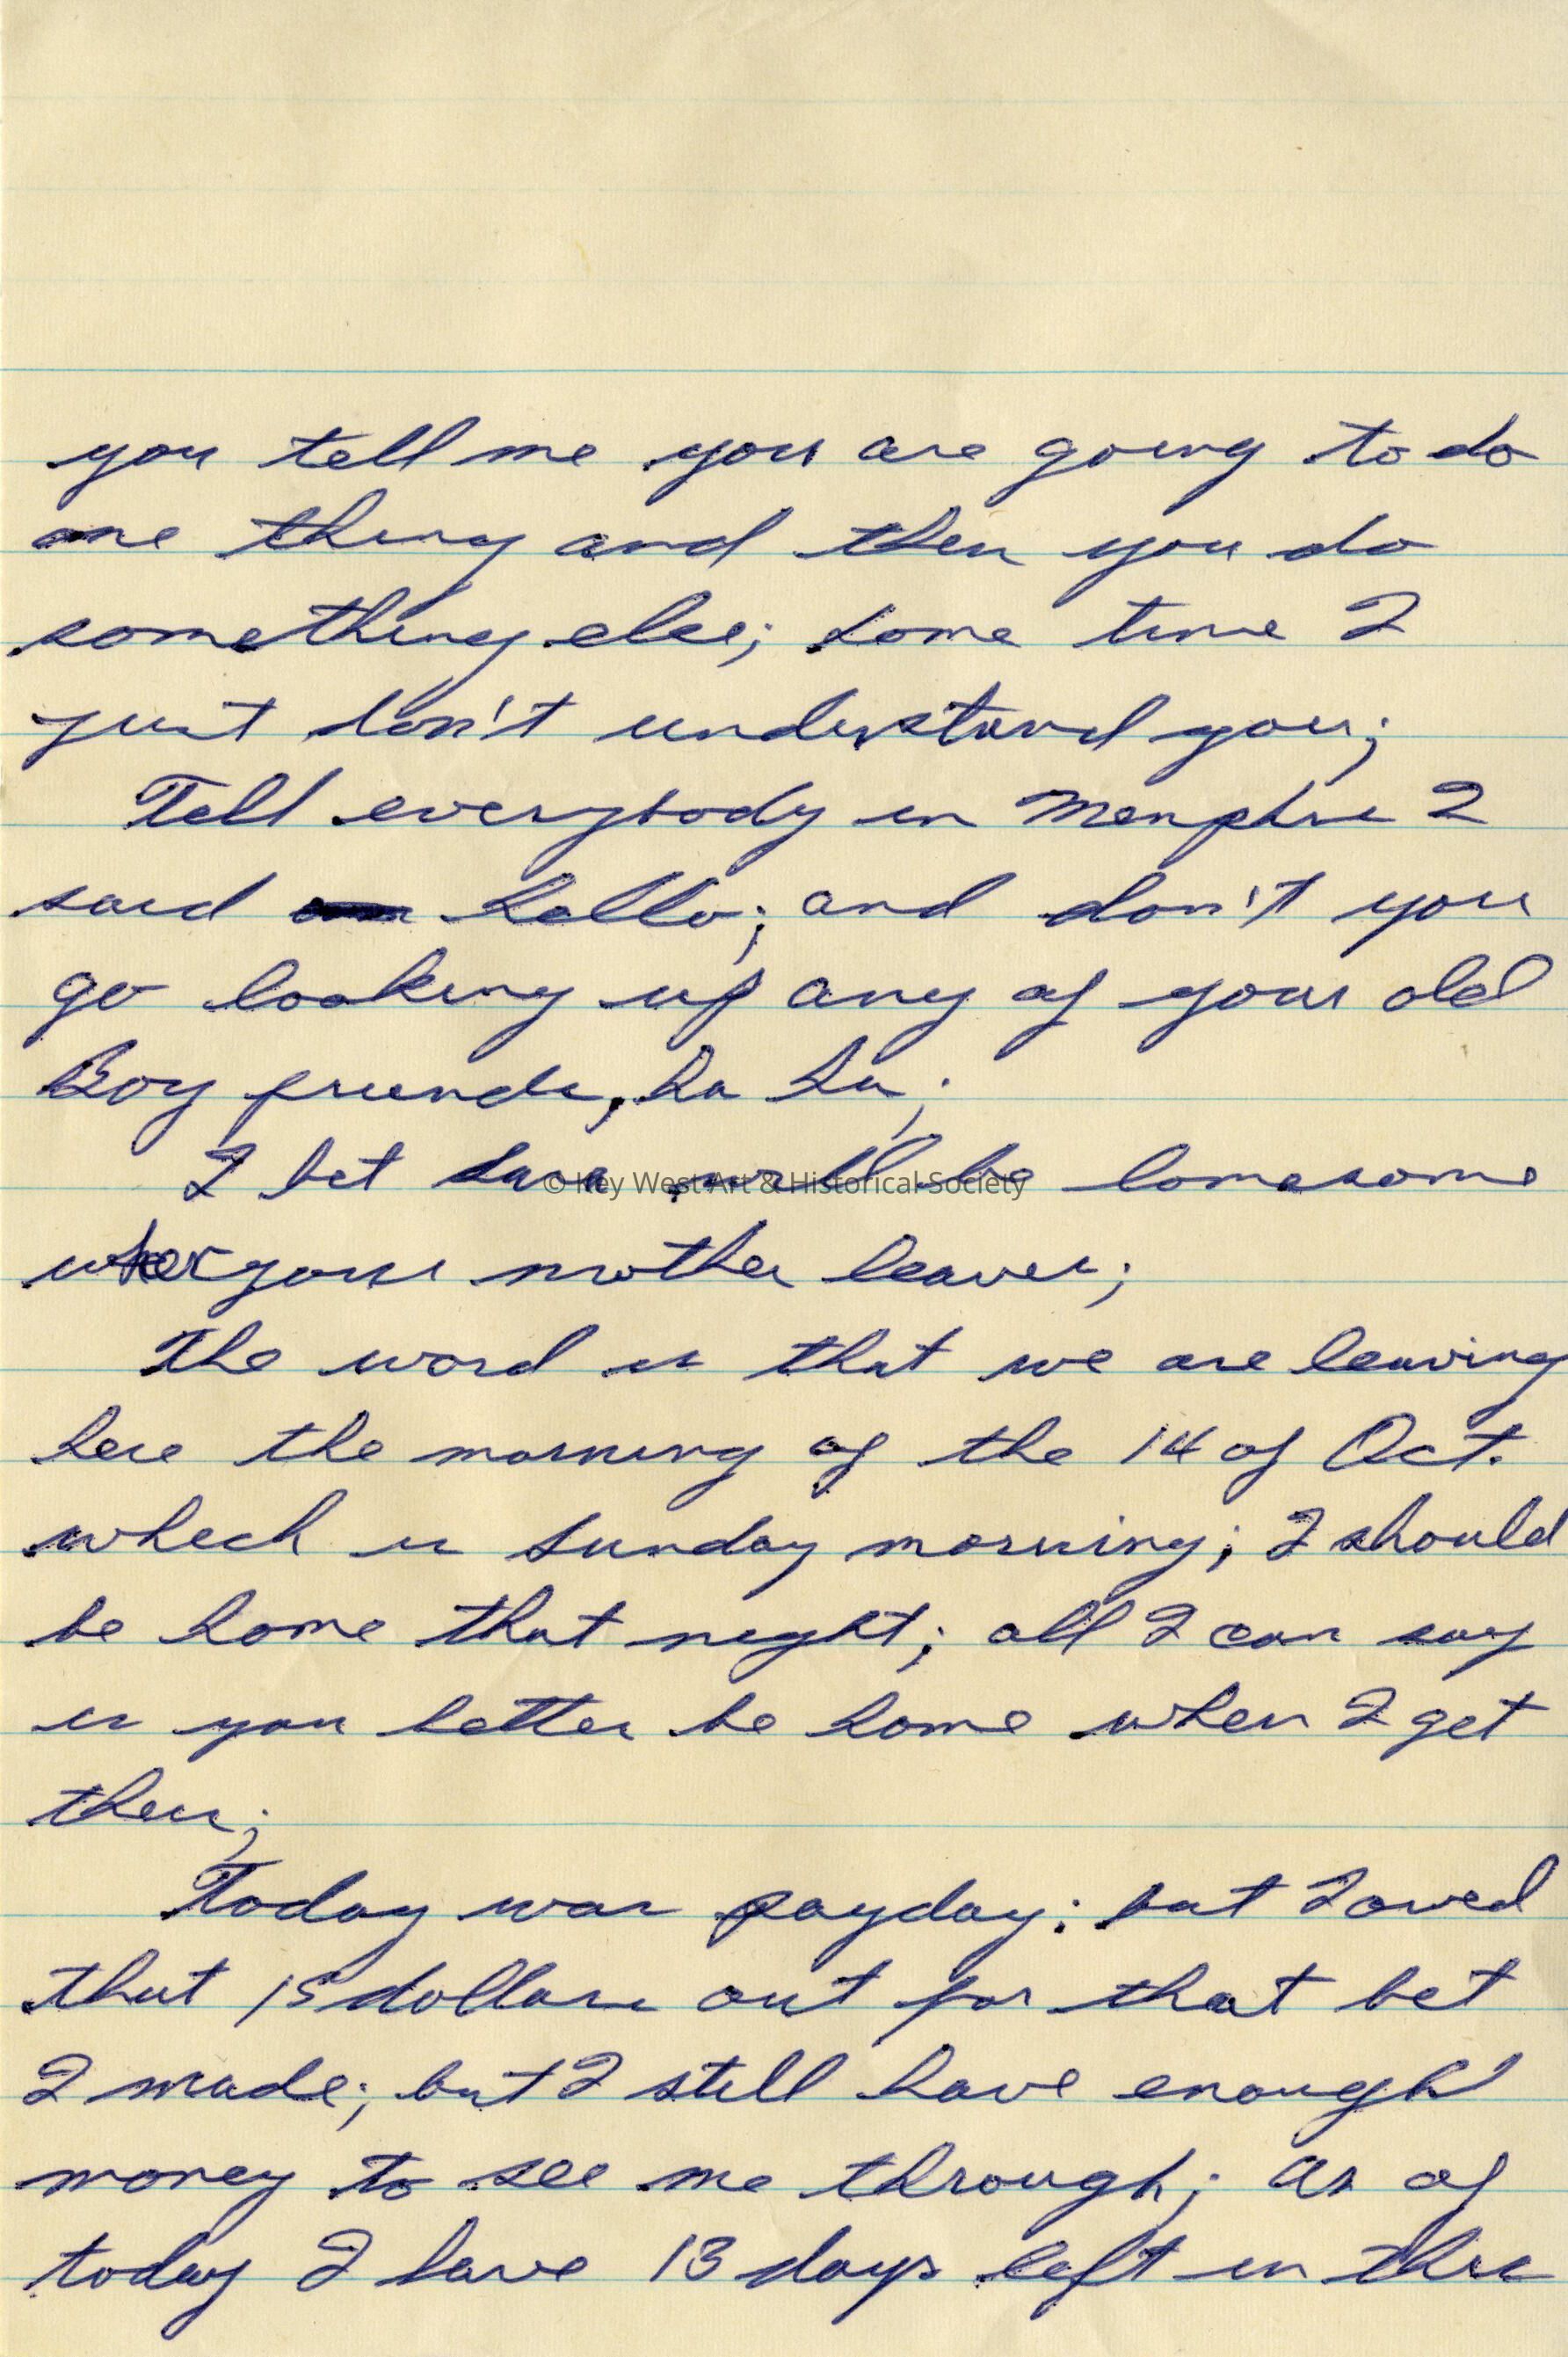 you tell me you are going to do
one thing and then you do
something else; some time I
just don't understand you;
Tell everybody in Memphis I
said hello; and don't you
go looking up any of your old
Boy friends, ha ha;
I bet will be lonesome
when your mother leaves;
The word is that we are leaving
here the morning of the 14 of Oct.
which is Sunday morning; I should
be home that night; all I can say
is you better be home when I get
there;
Today was payday; but I owed
that 15 dollars out for that bet
I made; but I still have enough
money to see me through; as of
today I have 13 days left in this
© Key West Art & Historical Society